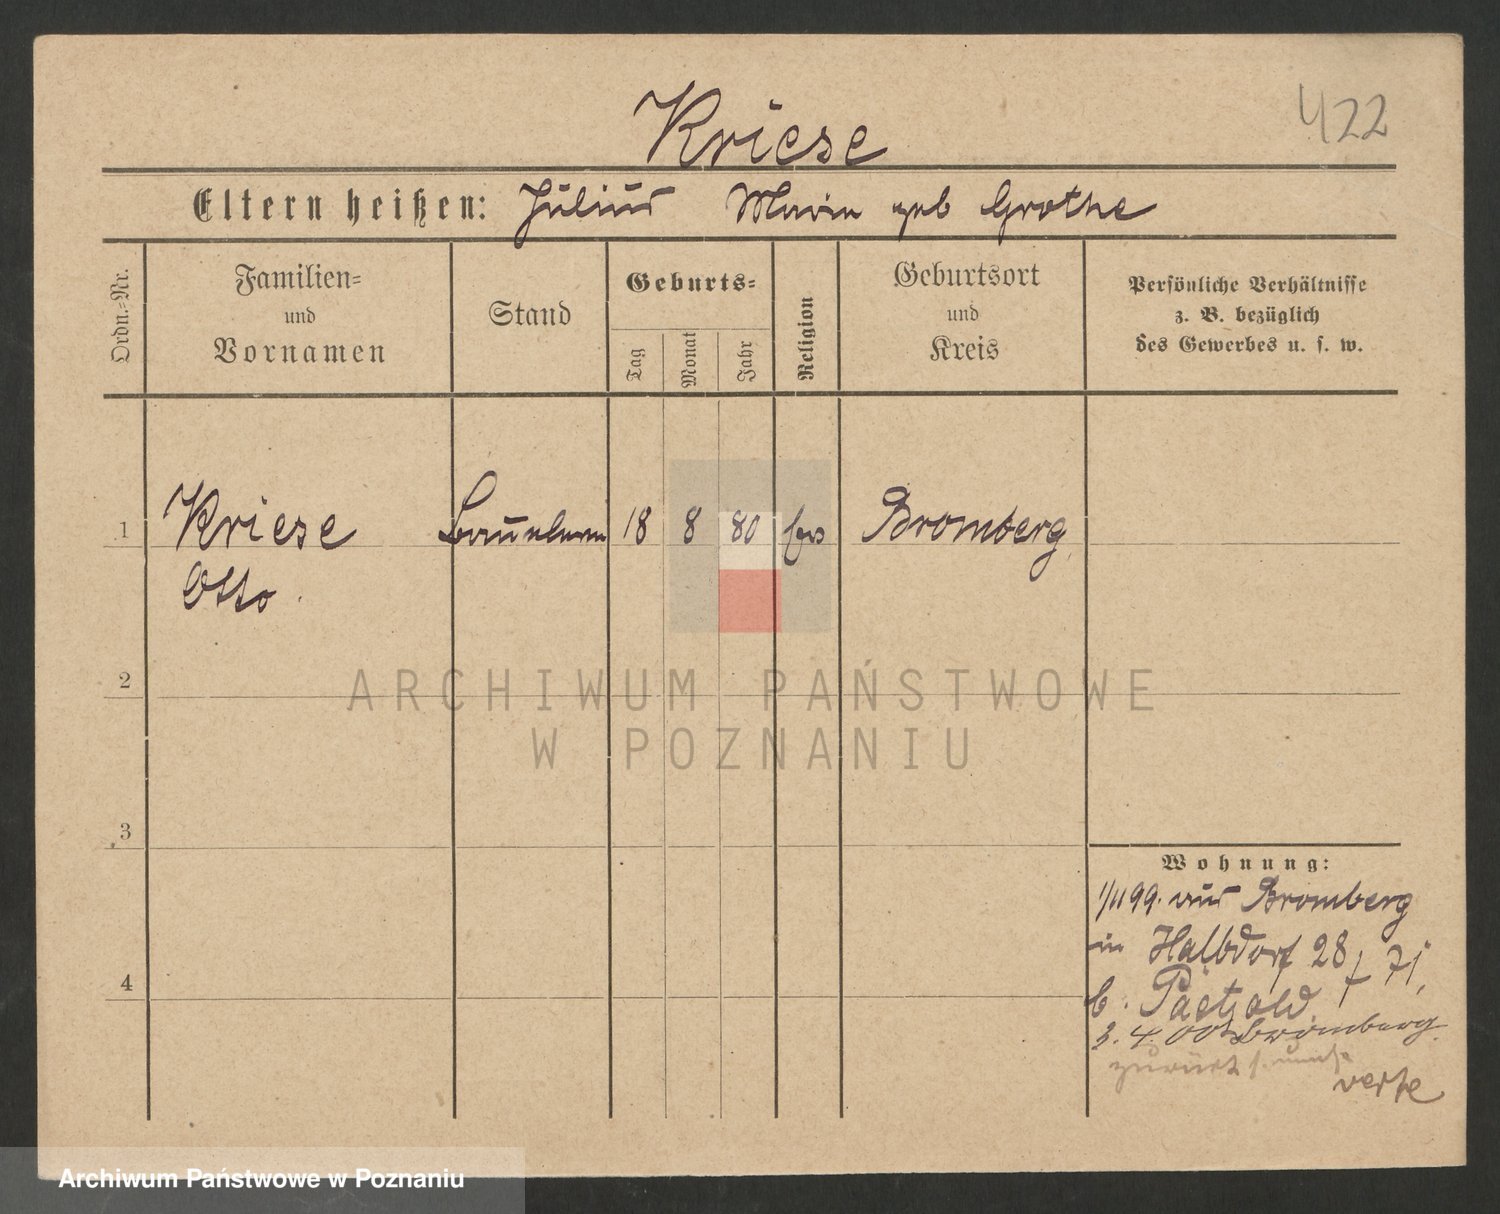 422
Kriese
Eltern heißen: Julius Maria geb Grothe
Ordn.-Nr.
Familien-
und
Vornamen
Stand
Geburts-
Tag
Monat
Jahr
Religion
Geburtsort
und
Kreis
Persönliche Verhältnisse
z. B. bezüglich
des Gewerbes u. s. w.
1 Kriese 18 8 80 Bromberg
Otto
2
ARCHIWUM PAŃSTWOWE
W POZNANIU
3
Wohnung:
1/11 99. aus Bromberg
in Halbdorf 28
4
b. Paetzold
3. 4. 00 Bromberg
zurück
verte
Archiwum Państwowe w Poznaniu